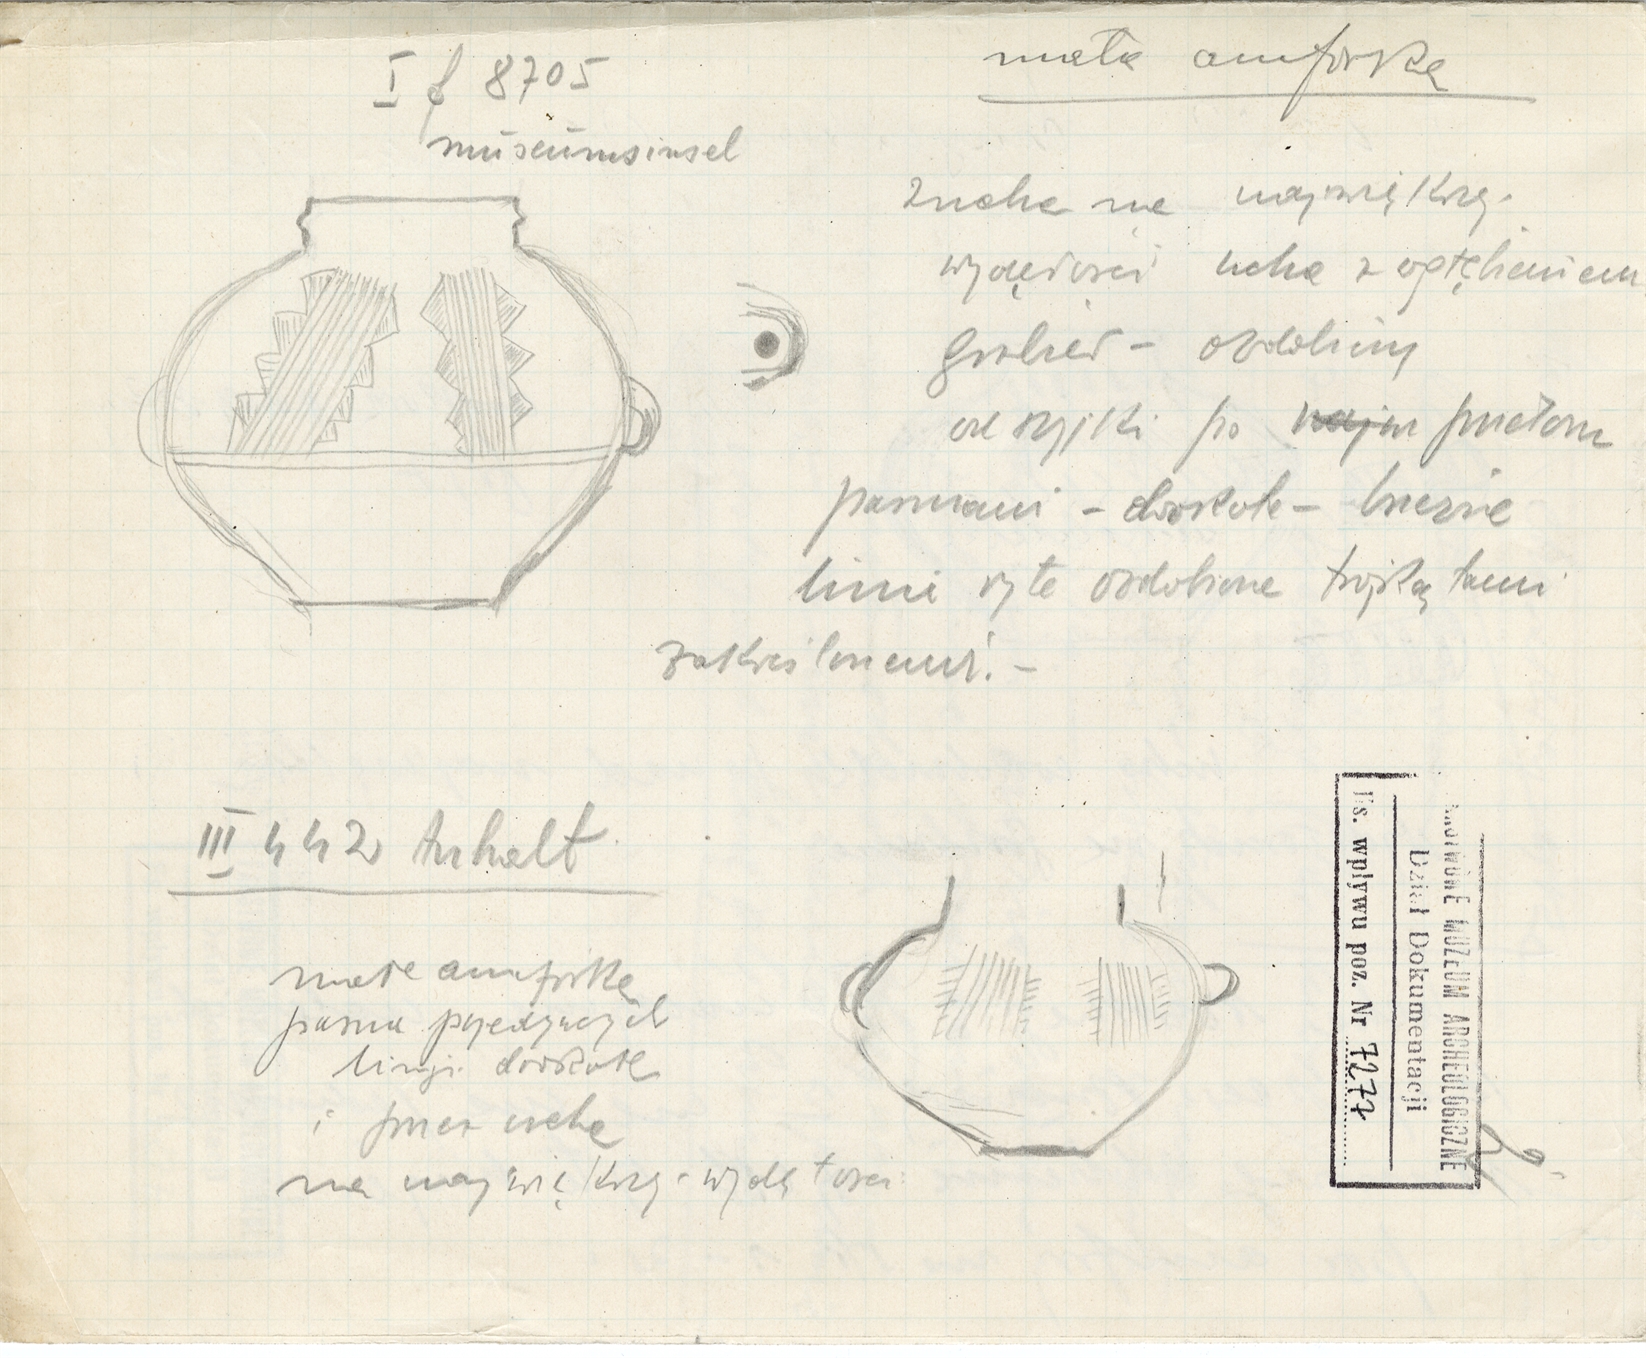 I f 8705
museumsinsel
mała amforka
2 ucha na największej
wydętości ucha z wgłębieniem
grubier - ozdobiony
od szyjki po
pasmami - dookoła -
linie ryte ozdobione trójkątami
zakreślonemi. -
III 442 Anhalt
mała amforka
pasma pojedynczych
linji dookoła
i przez ucha
na największej wydętości
PAŃSTWOWE MUZEUM ARCHEOLOGICZNE
Dział Dokumentacji
Ks. wpływu poz. Nr 7277